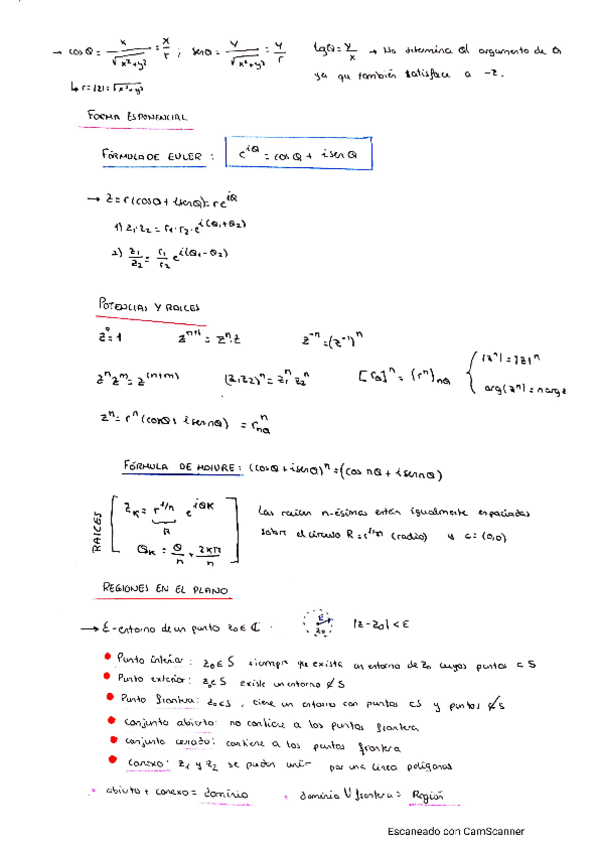 → cosθ = x/√x²+y² = x/r ; senθ = y/√x²+y² = y/r tgθ = y/x → No determina el argumento de θ,
↳ r=|z|=√x²+y² ya que también satisface a -z.
FORMA EXPONENCIAL
FÓRMULA DE EULER : e^iθ = cosθ + isenθ
→ z = r(cosθ + isenθ) = re^iθ
1) z₁·z₂ = r₁·r₂·e^i(θ₁+θ₂)
2) z₁/z₂ = r₁/r₂ e^i(θ₁-θ₂)
POTENCIAS Y RAICES
z⁰=1 z^n+1 = z^n·z z^-n = (z^-1)^n
z^n z^m = z^(n+m) (z₁z₂)^n = z₁^n z₂^n [rθ]^n = (r^n)nθ { |z^n| = |z|^n
arg(z^n) = n argz
z^n = r^n (cosnθ + isennθ) = r^n nθ
FÓRMULA DE MOIVRE: (cosθ + isenθ)^n = (cos nθ + isennθ)
RAICES [ z_K = r^1/n e^iθK Las raices n-ésimas están igualmente espaciadas
R sobre el círculo R=r^1/n (radio) y c=(0,0)
θ_K = θ/n + 2Kπ/n ]
REGIONES EN EL PLANO
→ ε-entorno de un punto z₀ ∈ ℂ . ε z₀ |z-z₀| < ε
• Punto interior : z₀ ∈ S siempre que exista un entorno de z₀ cuyos puntos ⊂ S
• Punto exterior : z₀ ∈ S existe un entorno ⊄ S
• Punto frontera : z₀ ∈ S , tiene un entorno con puntos ⊂ S y puntos ⊄ S
• conjunto abierto: no contiene a los puntos frontera
• conjunto cerrado: contiene a los puntos frontera
• conexo: z₁ y z₂ se pueden unir por una línea poligonal
* abierto + conexo = dominio * dominio ∪ frontera = Región
Escaneado con CamScanner